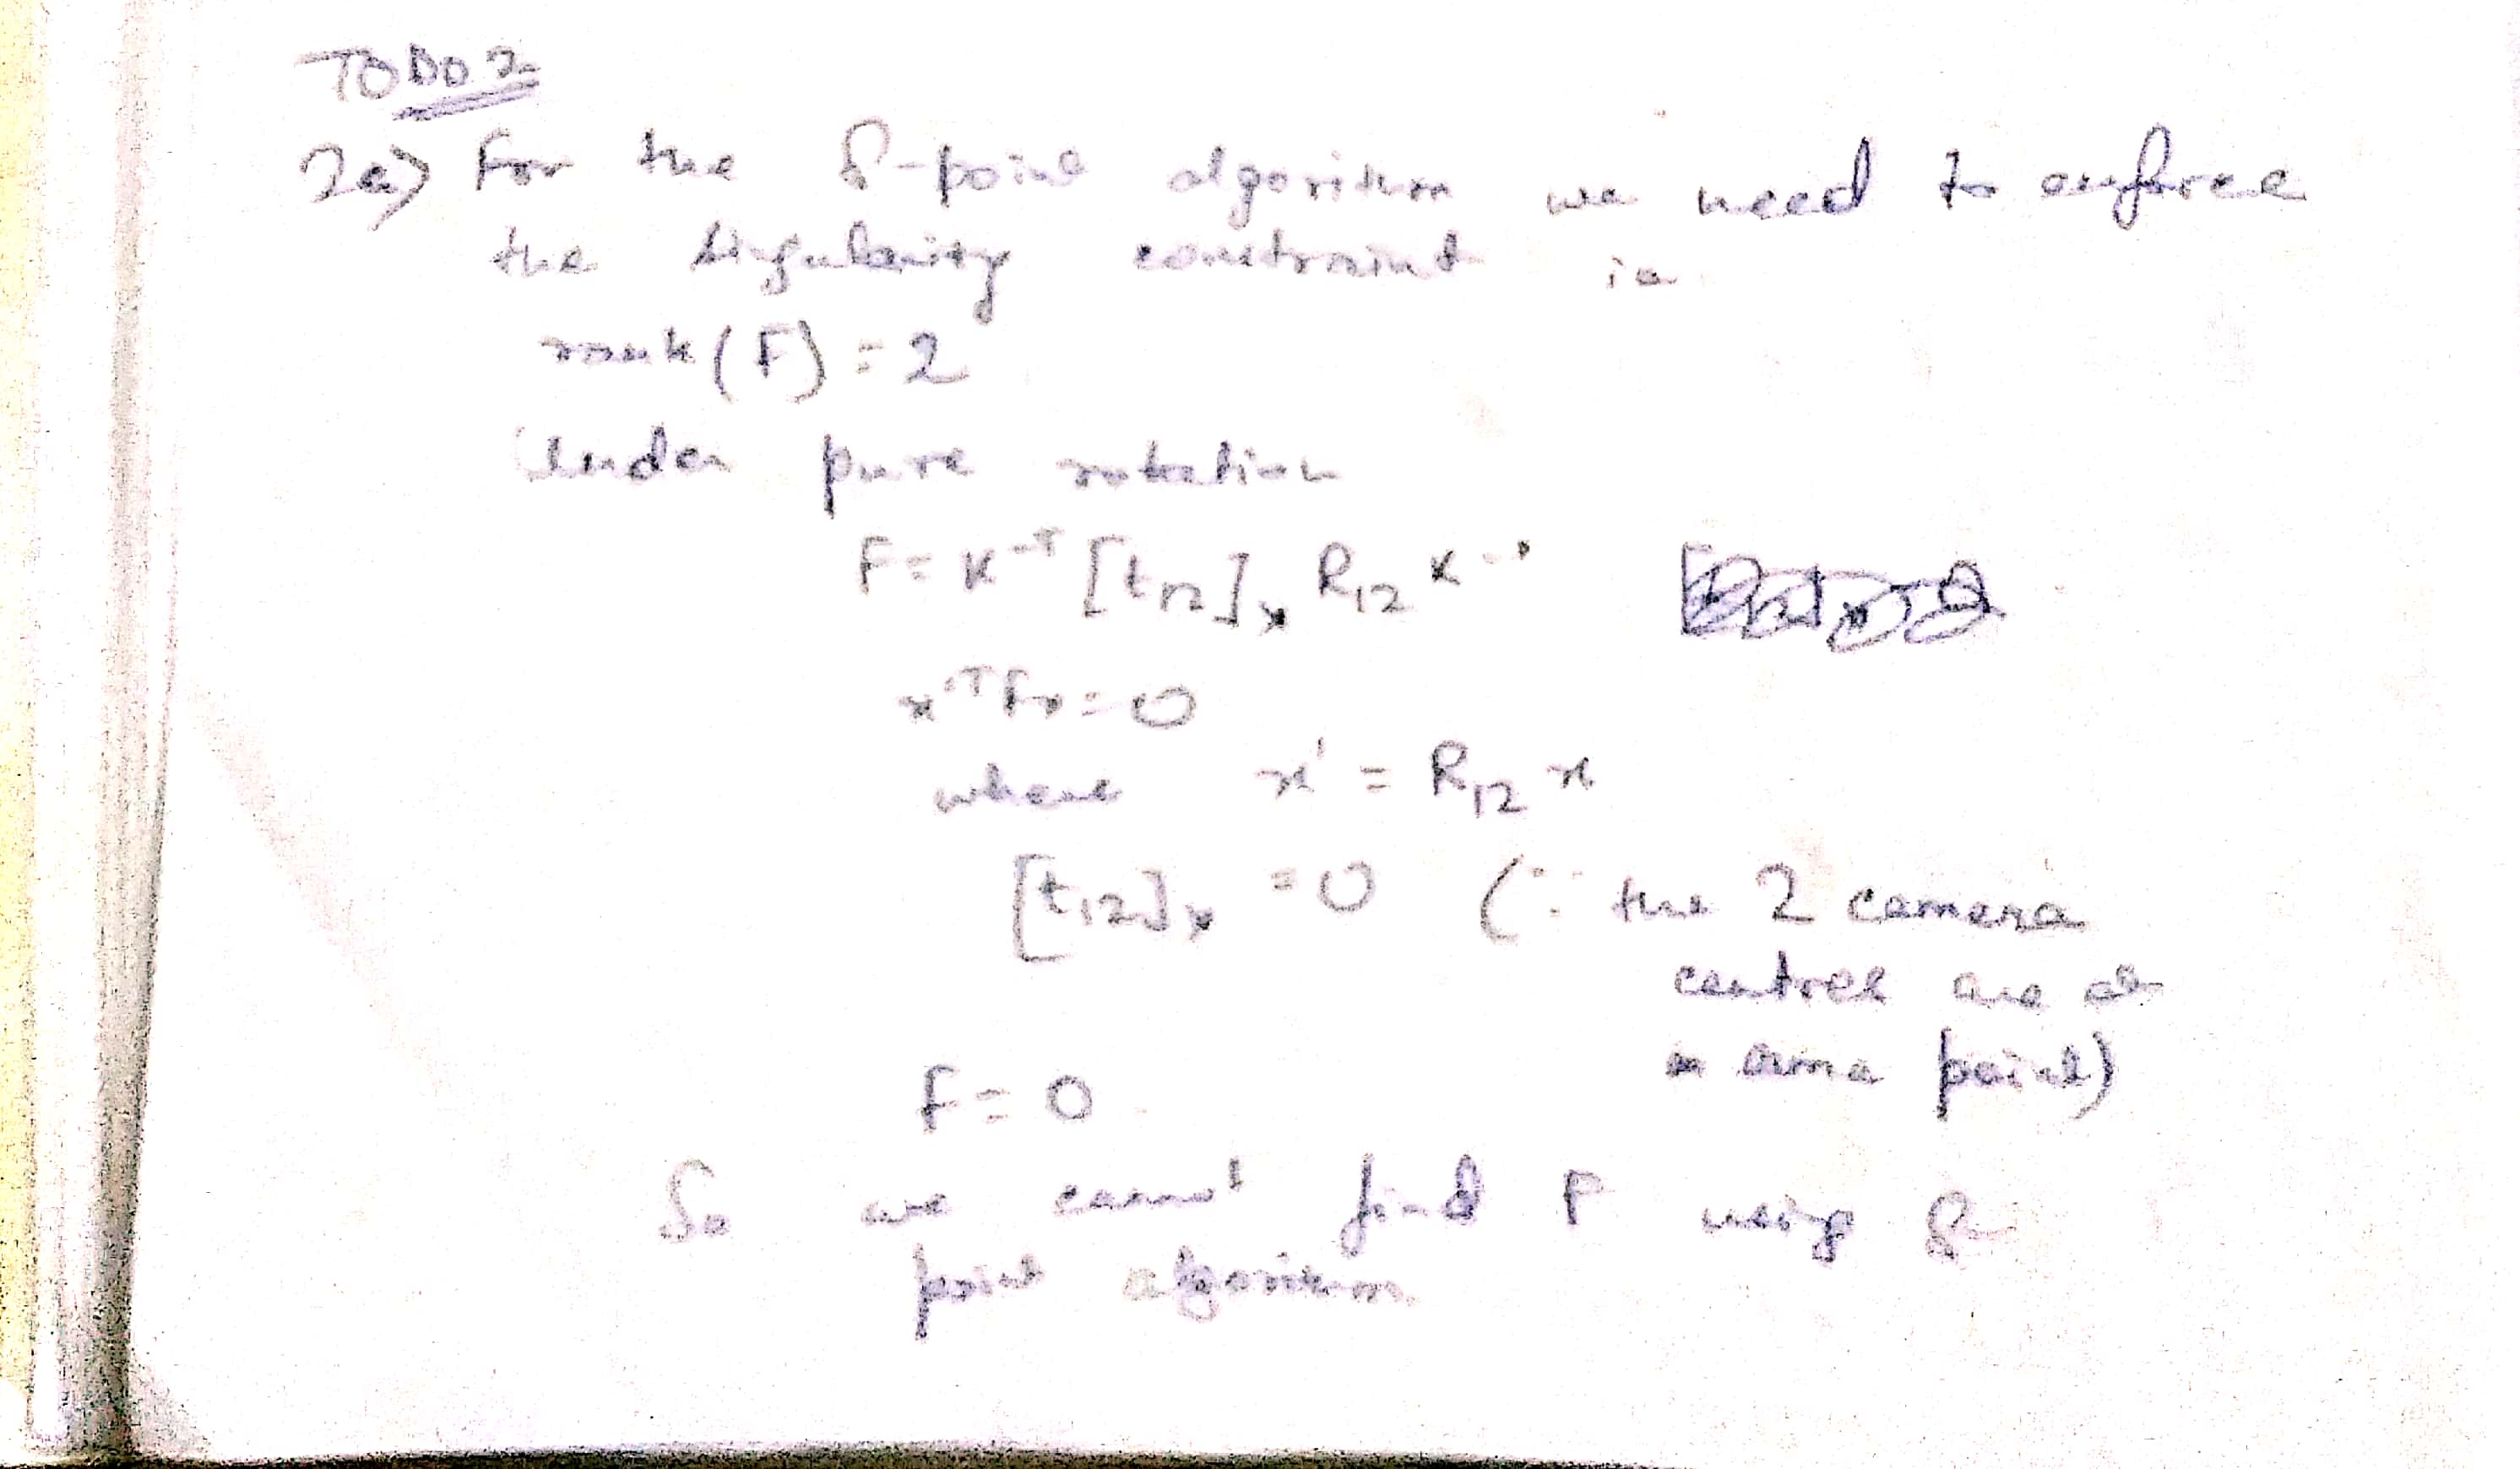 TODO 2
2a) For the 8-point algorithm we need to enforce
the singularity constraint ie
rank(F) = 2
Under pure rotation
F = K⁻ᵀ [t₁₂]ₓ R₁₂ K⁻¹
x'ᵀFx = 0
where x' = R₁₂ x
[t₁₂]ₓ = 0 (∵ the 2 camera
centres are at
same point)
F = 0
So we cannot find F using 8-
point algorithm